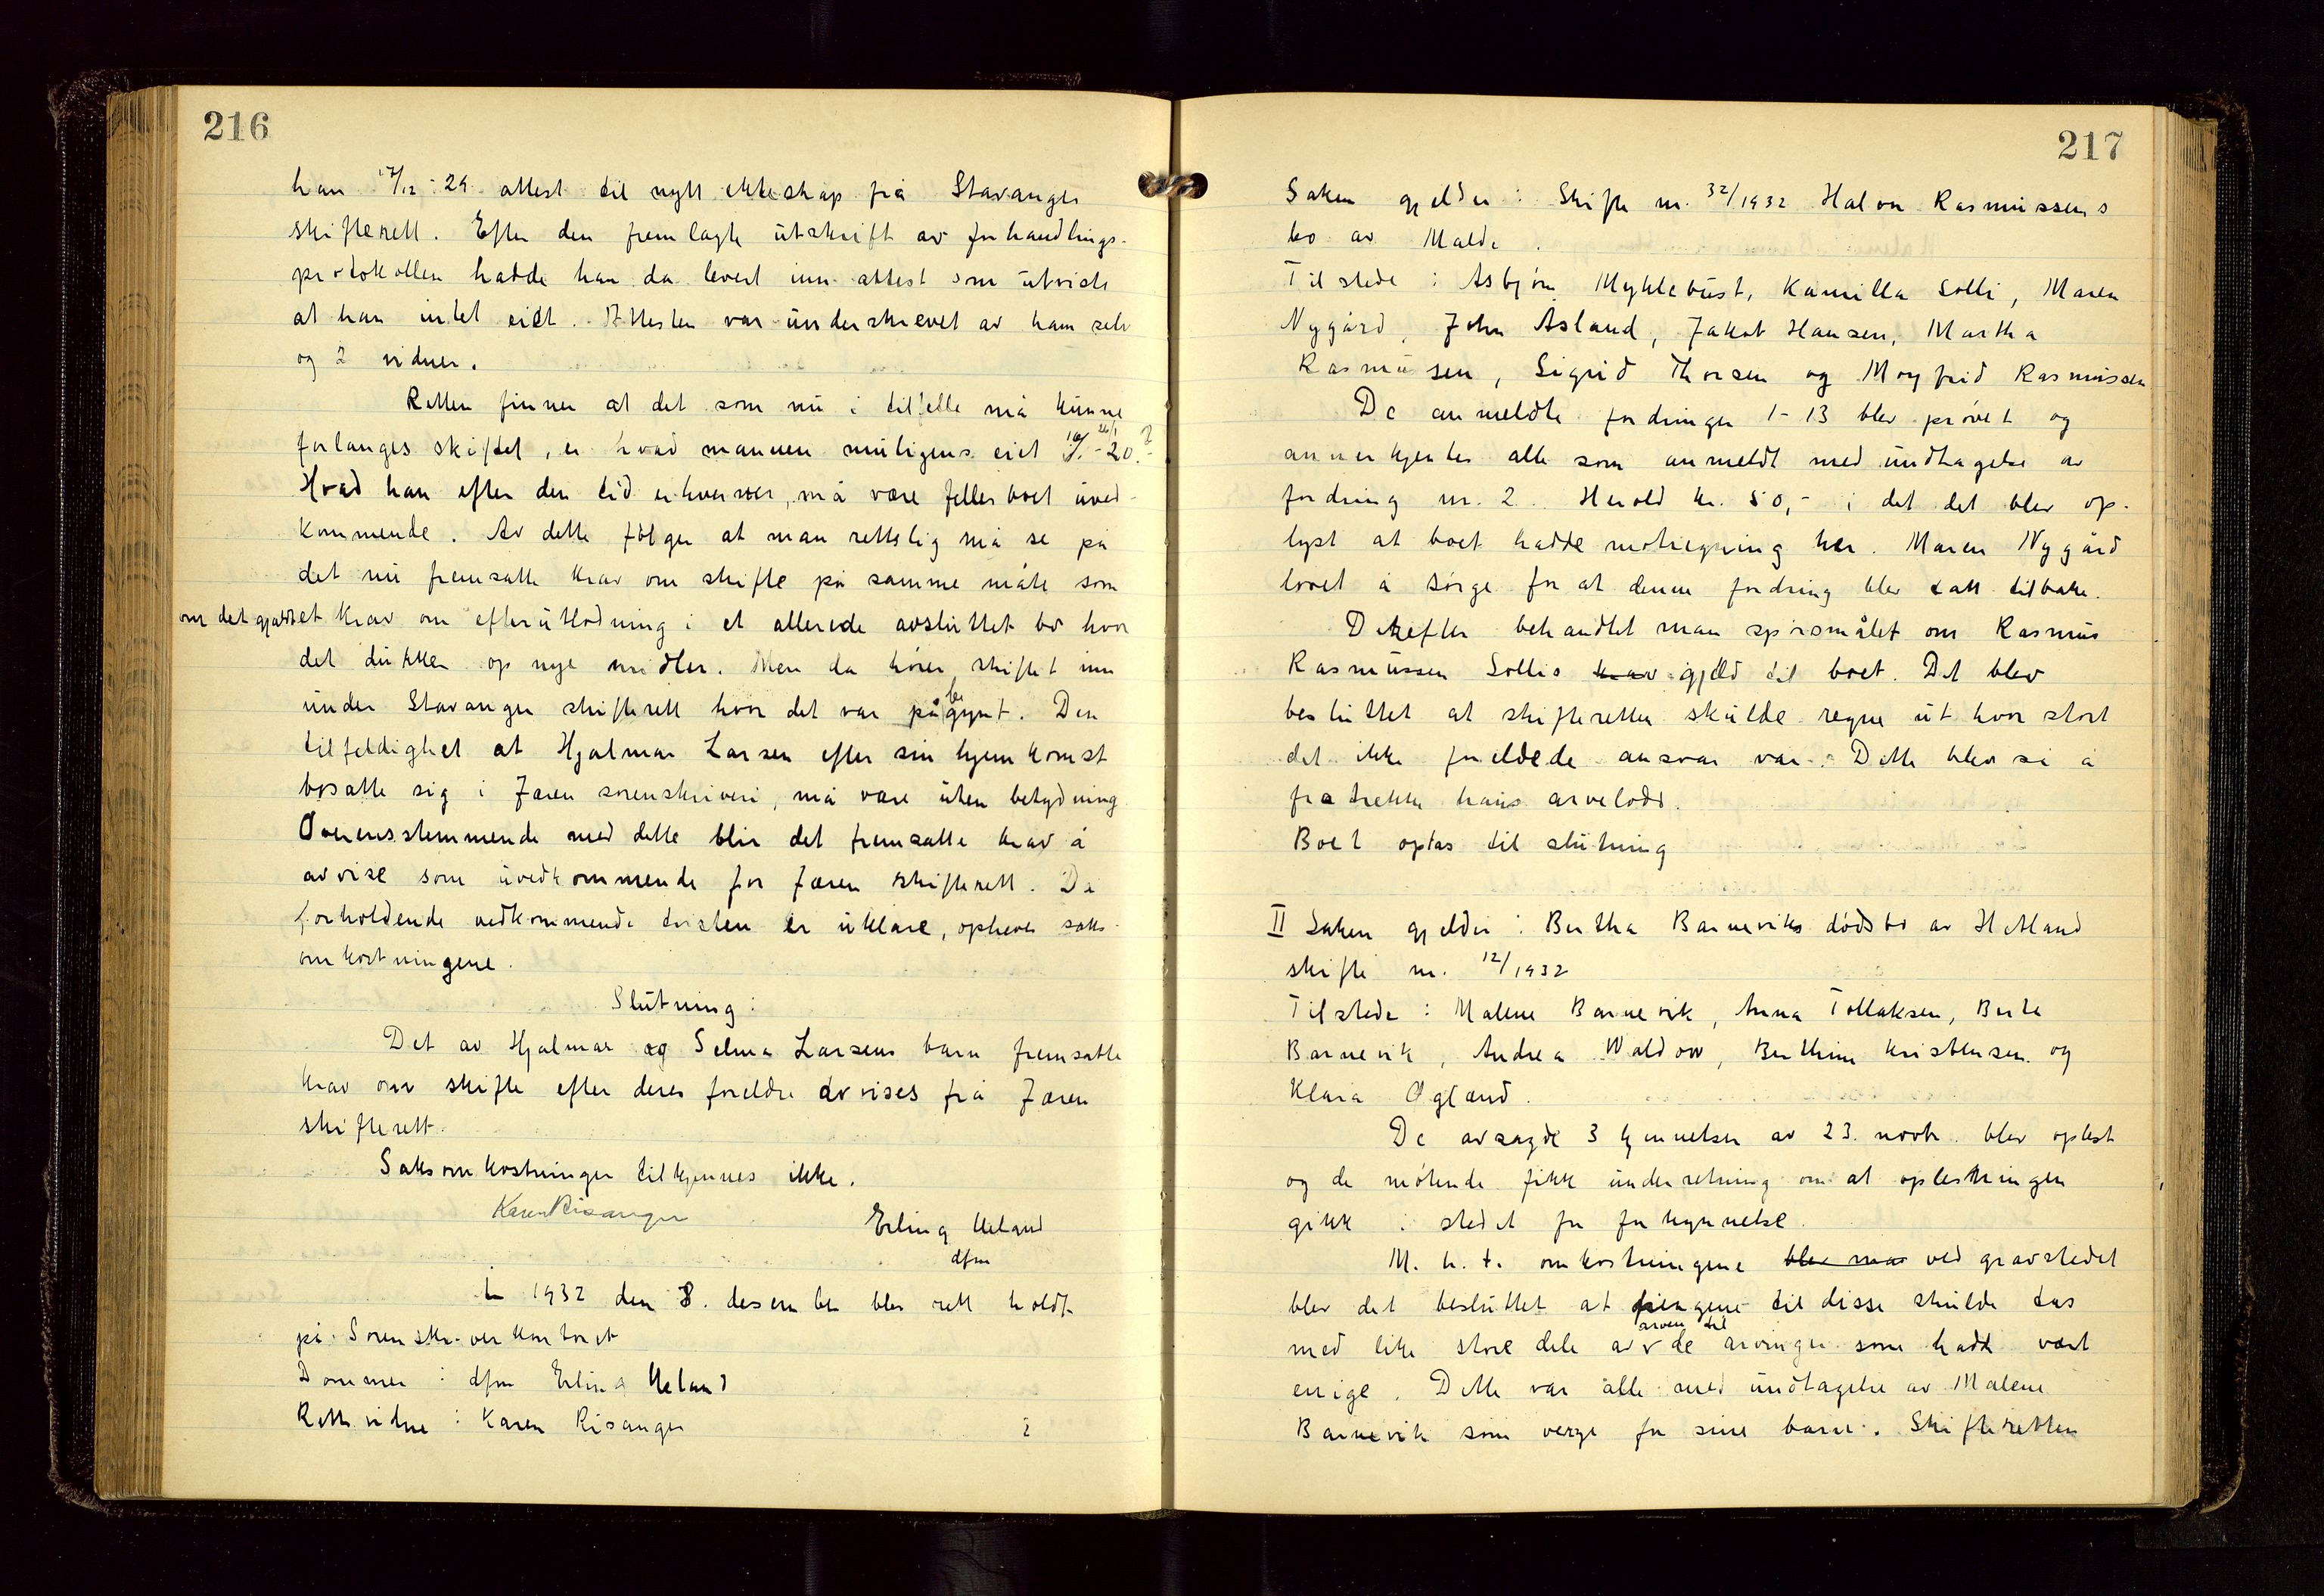 216
han 17/12-24 attest til nytt ekteskap frå Stavanger
skifterett. Efter den fremlagte utskrift av forhandlings-
protokollen hadde han da levert inn attest som utviste
at han intet eiet. Attesten var underskrevet av ham selv
og 2 vidner.
Retten finner at det som nu i tilfelle må kunne
forlanges skiftet, er hvad mannen muligens eiet -20.
Hvad han efter den tid erhverver, må være fellesboet uved-
kommende. Av dette følger at man rettslig må se på
det nu fremsatte krav om skifte på samme måte som
om det gjaldt et krav om efterutlodning i et allerede avsluttet bo hvor
det dukker op nye midler. Men da hører skiftet inn
under Stavanger skifterett hvor det var påbegynt. Den
tilfeldighet at Hjalmar Larsen efter sin hjemkomst
bosatte sig i Jæren sorenskriveri, må være uten betydning
Overensstemmende med dette blir det fremsatte krav å
avvise som uvedkommende for Jæren skifterett. Da
forholdende vedkommende tvisten er uklare, opheves saks-
omkostningene.
Slutning:
Det av Hjalmar og Selma Larsens barn fremsatte
krav om skifte efter deres foreldre avvises frå Jæren
skifterett.
Saksomkostninger tilkjennes ikke.
Karen Risanger
Erling Ueland
dfm
År 1932 den 8. desember blev rett holdt
på Sorenskriverkontoret
Dommer: dfm Erling Ueland
Rettsvidne: Karen Risanger
217
Saken gjelder: Skifte nr. 32/1932 Halvor Rasmussens
bo av Malde.
Tilstede: Asbjørn Myklebust, Kamilla Solli, Maren
Nygård, John Åsland, Jakob Hansen, Martha
Rasmussen, Sigrid Thorsen og Moyfrid Rasmussen
De anmeldte fordringer 1-13 blev prøvet og
annerkjentes alle som anmeldt med undtagelse av
fordring nr. 2. Herold kr. 50,- i det det blev op-
lyst at boet hadde motregning her. Maren Nygård
lovet å sørge for at denne fordring blev tatt tilbake.
Derefter behandlet man spørsmålet om Rasmus
Rasmussen Sollis krav gjeld til boet. Det blev
besluttet at skifteretten skulde regne ut hvor stort
det ikke foreldede ansvar var. Dette blev så å
fratrekke hans arvelodd.
Boet optas til slutning
II Saken gjelder: Bertha Barneviks dødsbo av Hetland
skifte nr. 12/1932
Tilstede: Malene Barnevik, Anna Tollaksen, Berte
Barnevik, Andrea Waldow, Berthine Kristensen og
Klara Øgland.
De avsagde 3 kjennelser av 23. novbr. blev oplest
og de møtende fikk underretning om at oplesningen
gikk i stedet for forkynnelse.
M. h. t. omkostningene blev man ved gravstedet
blev det besluttet at pengene til disse skulde tas
med like store dele av arven til de arvinger som hadde vært
enige. Dette var alle med undtagelse av Malene
Barnevik som verge for sine barn. Skifteretten